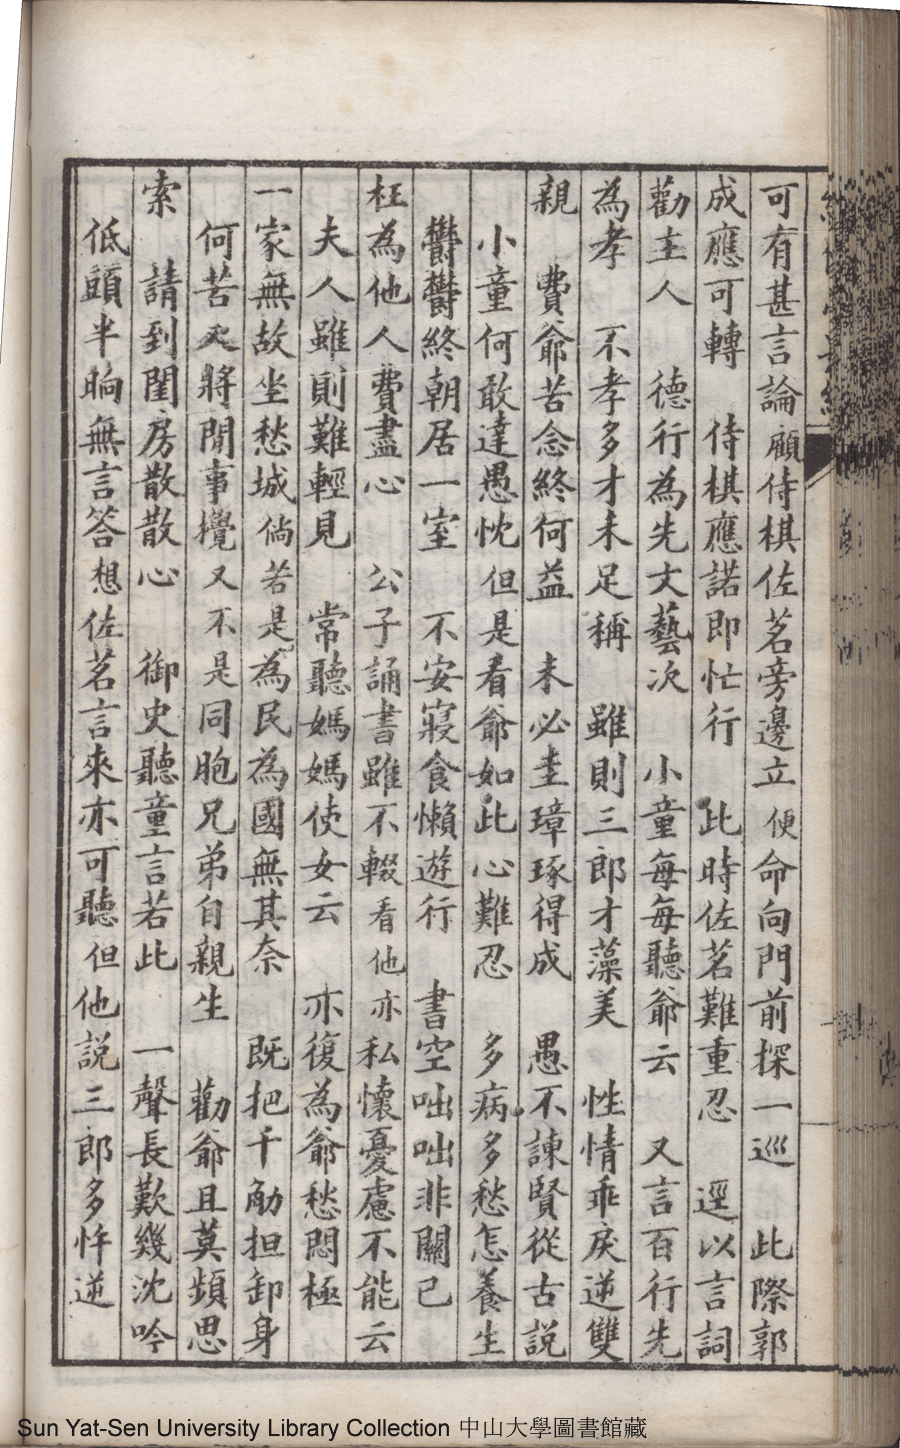 可有甚言論顧侍棋佐茗旁邊立便命向門前探一巡　此際郭
成應可轉　侍棋應諾即忙行　此時佐茗難重忍　逕以言詞
勸主人　德行為先文藝次　小童每每聽爺云　又言百行先
為孝　不孝多才未足稱　雖則三郎才藻美　性情乖戾逆雙
親　費爺苦念終何益　未必圭璋琢得成　愚不諫賢從古說
小童何敢達愚忱但是看爺如此心難忍　多病多愁怎養生
鬱鬱終朝居一室　不安寢食懶遊行　書空咄咄非關己
枉為他人費盡心　公子誦書雖不輟看他亦私懷憂慮不能云
夫人雖則難輕見　常聽媽媽使女云　亦復為爺愁悶極
一家無故坐愁城倘若是為民為國無其奈　既把千觔担卸身
何苦又將閒事攪又不是同胞兄弟自親生　勸爺且莫頻思
索　請到閨房散散心　御史聽童言若此　一聲長歎幾沈吟
低頭半晌無言答想佐茗言來亦可聽但他說三郎多忤逆
Sun Yat-Sen University Library Collection 中山大學圖書館藏